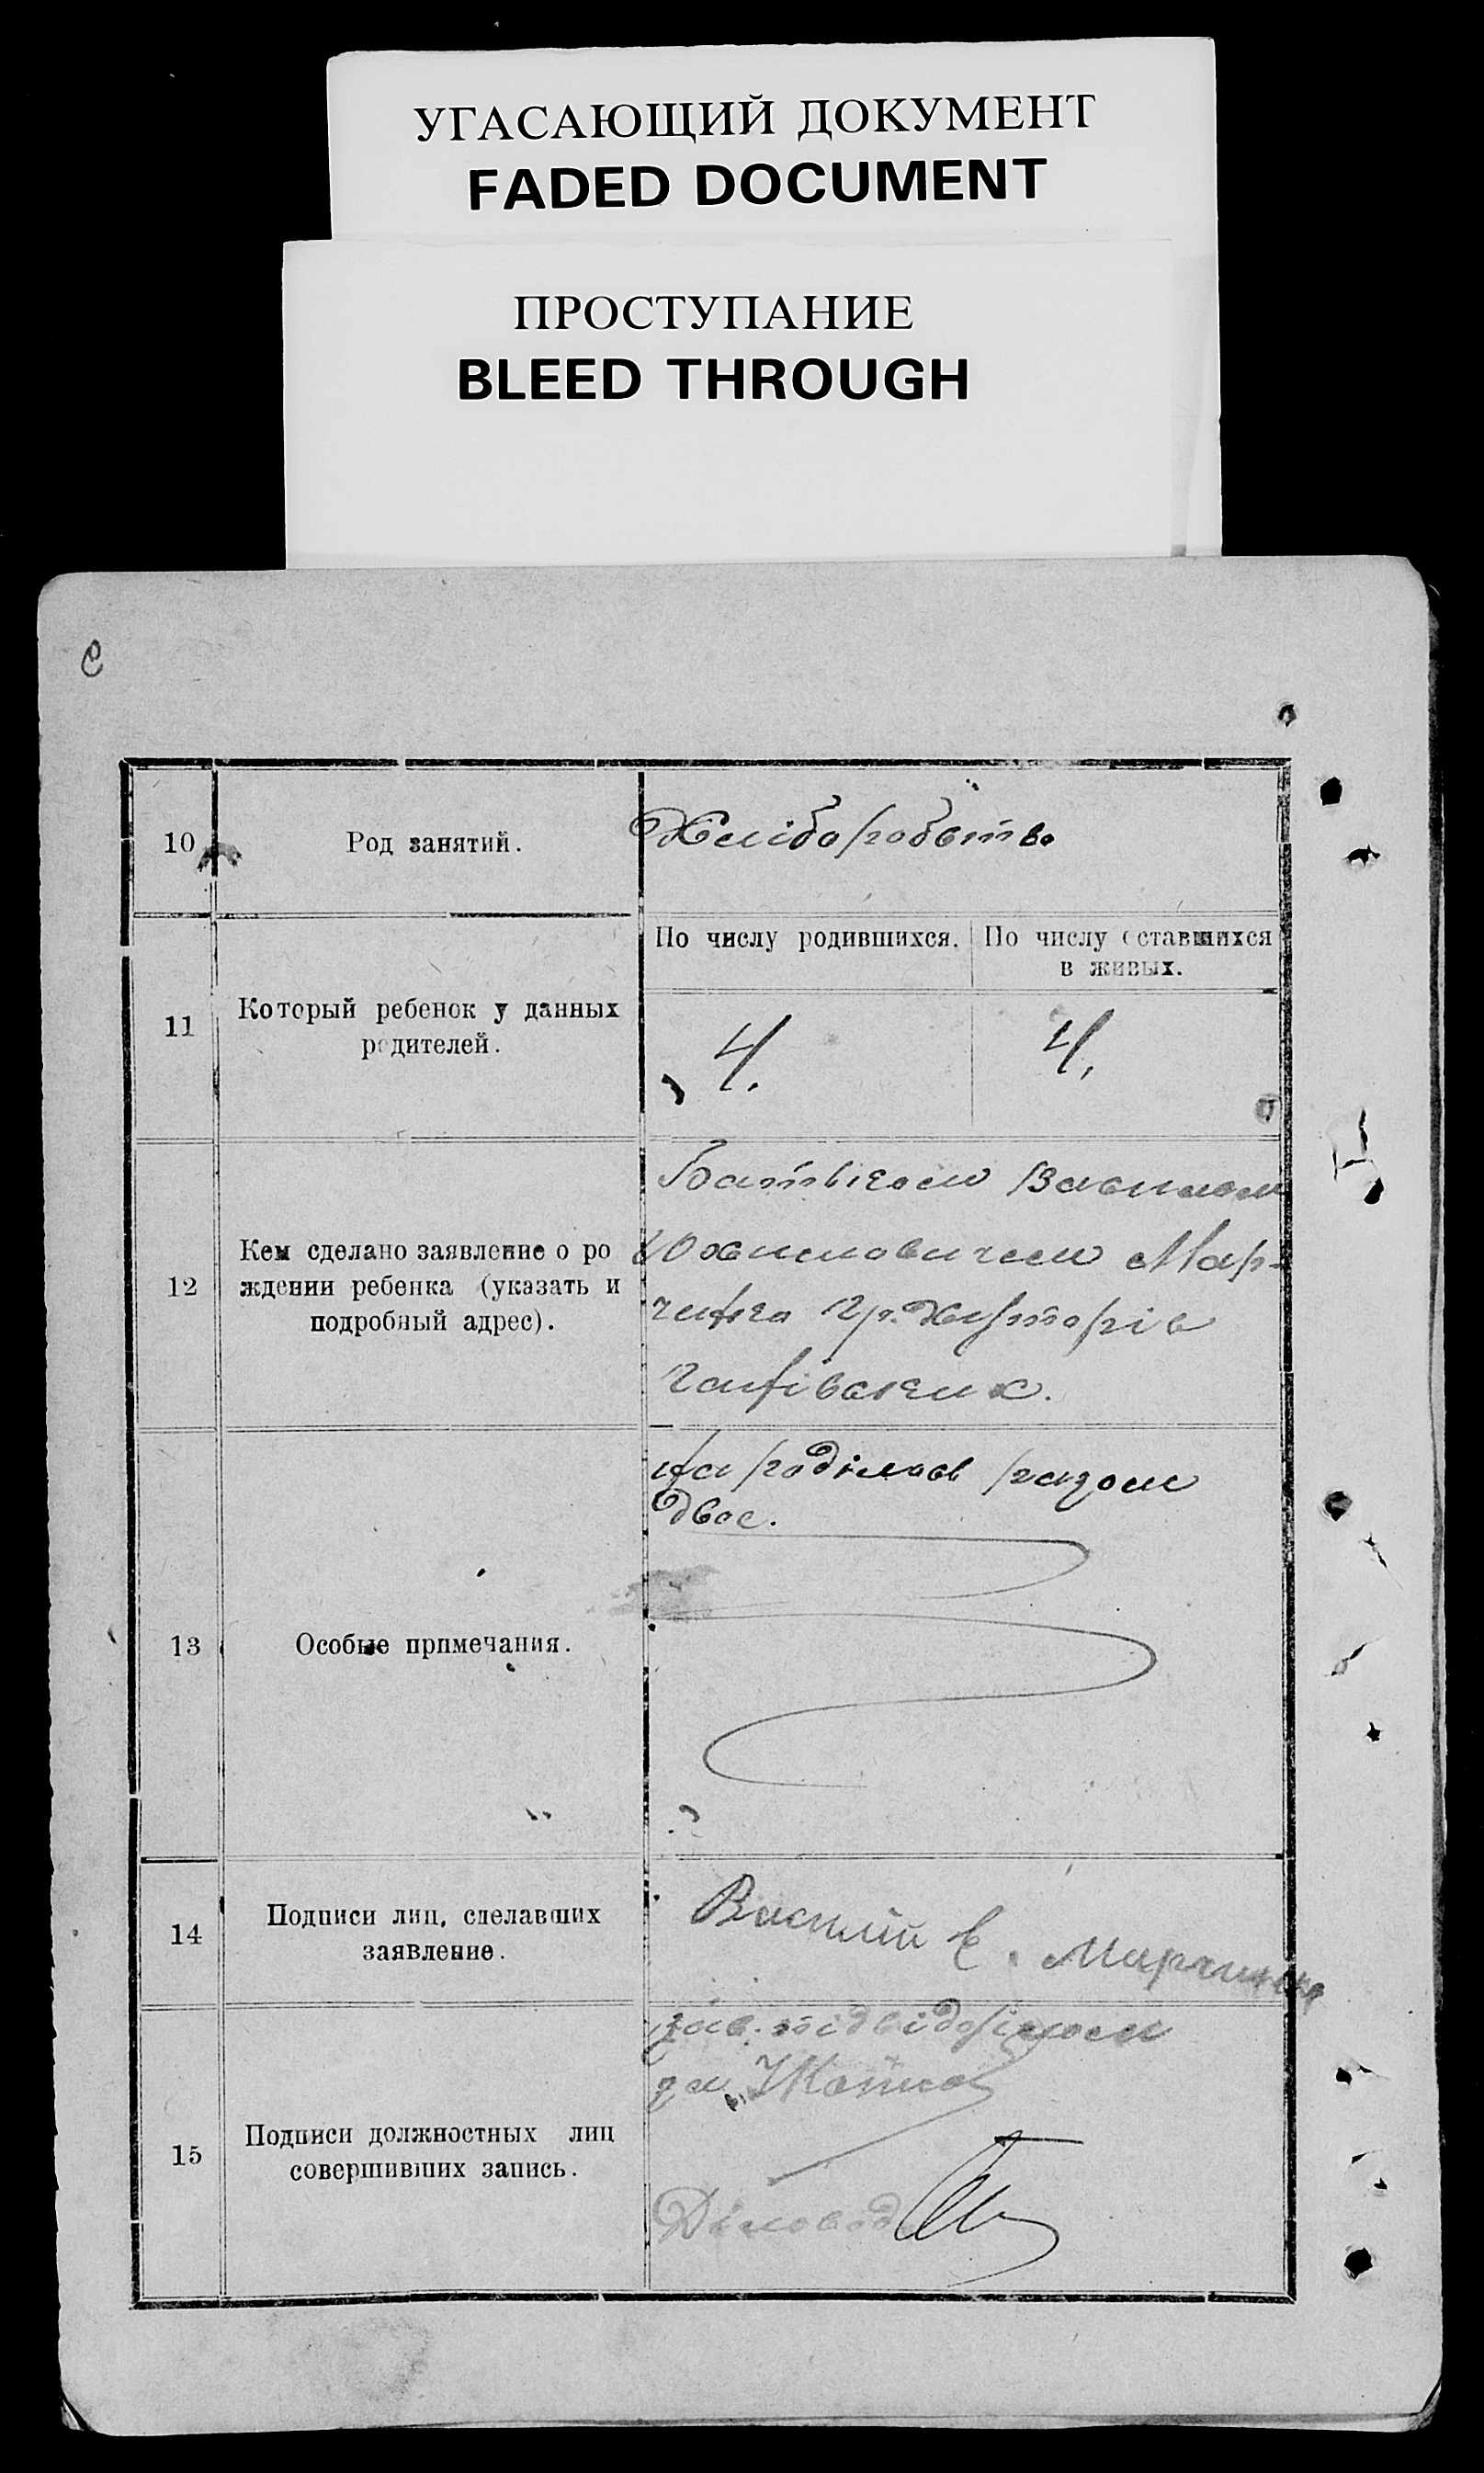 УГАСАЮЩИЙ ДОКУМЕНТ
FADED DOCUMENT
ПРОСТУПАНИЕ
BLEED THROUGH
10 Род занятий. Хліборобство
11 Который ребенок у данных
родителей.
По числу родившихся. По числу оставшихся
в живых.
4. 4.
12 Кем сделано заявление о ро
ждении ребенка (указать и
подробный адрес).
Батьком Василем
Юхимовичем Мар-
ченко гр. Хуторів
13 Особые примечания.
народилось разом
двоє.
14 Подписи лиц, сделавших
заявление.
Василій Е. Марченко
15 Подписи должностных лиц
совершивших запись.
зав. підвідділом
Діловод